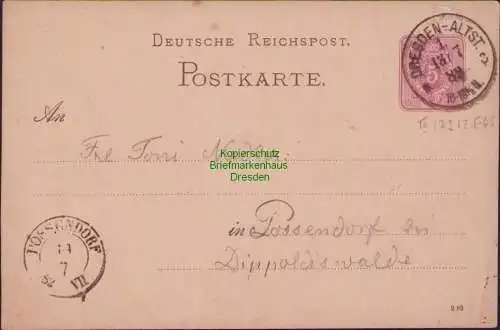 DEUTSCHE REICHSPOST.
POSTKARTE.
DRESDEN-ALTST.
An
Frl Toni
Kopierschutz
Briefmarkenhaus
Dresden
in Possendorf bei
Dippoldiswalde
POSSENDORF
14
7
82 VII